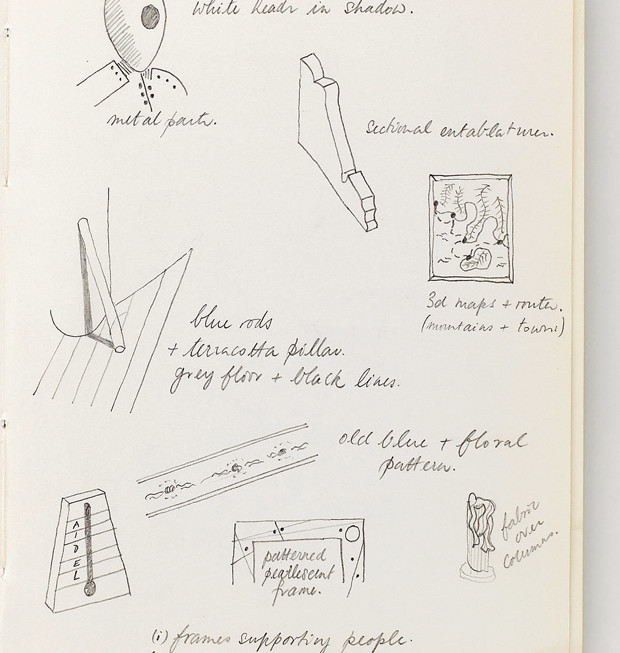 white heads in shadow.
metal parts.
sectional entablatures.
3d maps + routes.
(mountains + towns)
blue rods
+ terracotta pillar.
grey floor + black lines.
old blue + floral
pattern.
A
I
D
E
L
patterned
pearlescent
frame.
fabric
over
columns.
(i) frames supporting people.